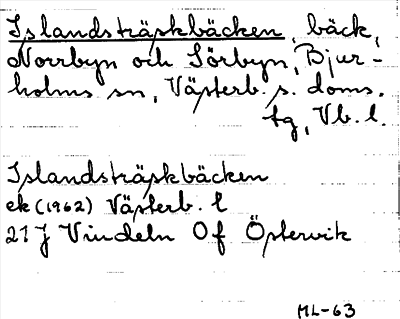 Islandsträskbäcken, bäck,
Norrbyn och Sörbyn, Bjur-
holms sn, Västerb. s. doms.
tg, Vb. l.
Islandsträskbäcken
ek (1962) Västerb. l
21 J Vindeln Of Östervik
ML-63